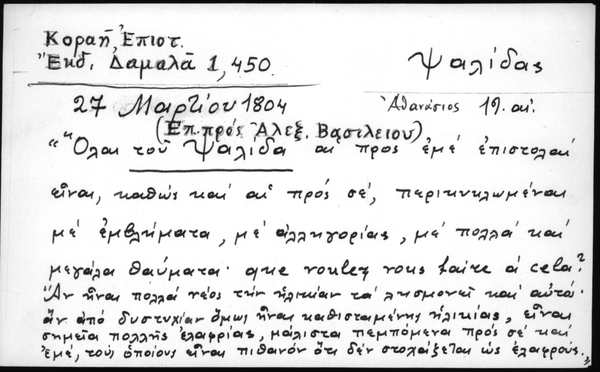 Κοραῆ, Ἐπιστ.
Ἐκδ. Δαμαλᾶ 1, 450.
Ψαλίδας
27 Μαρτίου 1804
Ἀθανάσιος 19. αἰ.
(Ἐπ. πρός Ἀλεξ. Βασιλείου)
"Ὅλαι τοῦ Ψαλίδα αἱ πρός ἐμέ ἐπιστολαί
εἶναι, καθώς καί αἱ πρός σέ, περικυκλωμέναι
μέ ἐμβλήματα, μέ ἀλληγορίας, μέ πολλά καί
μεγάλα θαύματα· que voulez vous faire á cela?
Ἄν ἦναι πολλά νέος τήν ἡλικίαν τά λησμονεῖ καί αὐτά·
ἄν ἀπό δυστυχίαν ὅμως ἦναι καθισταμένης ἡλικίας, εἶναι
σημεῖα πολλῆς ἐλαφρίας, μάλιστα πεμπόμενα πρός σέ καί
ἐμέ, τούς ὁποίους εἶναι πιθανόν ὅτι δέν στοχάζεται ὡς ἐλαφρούς.